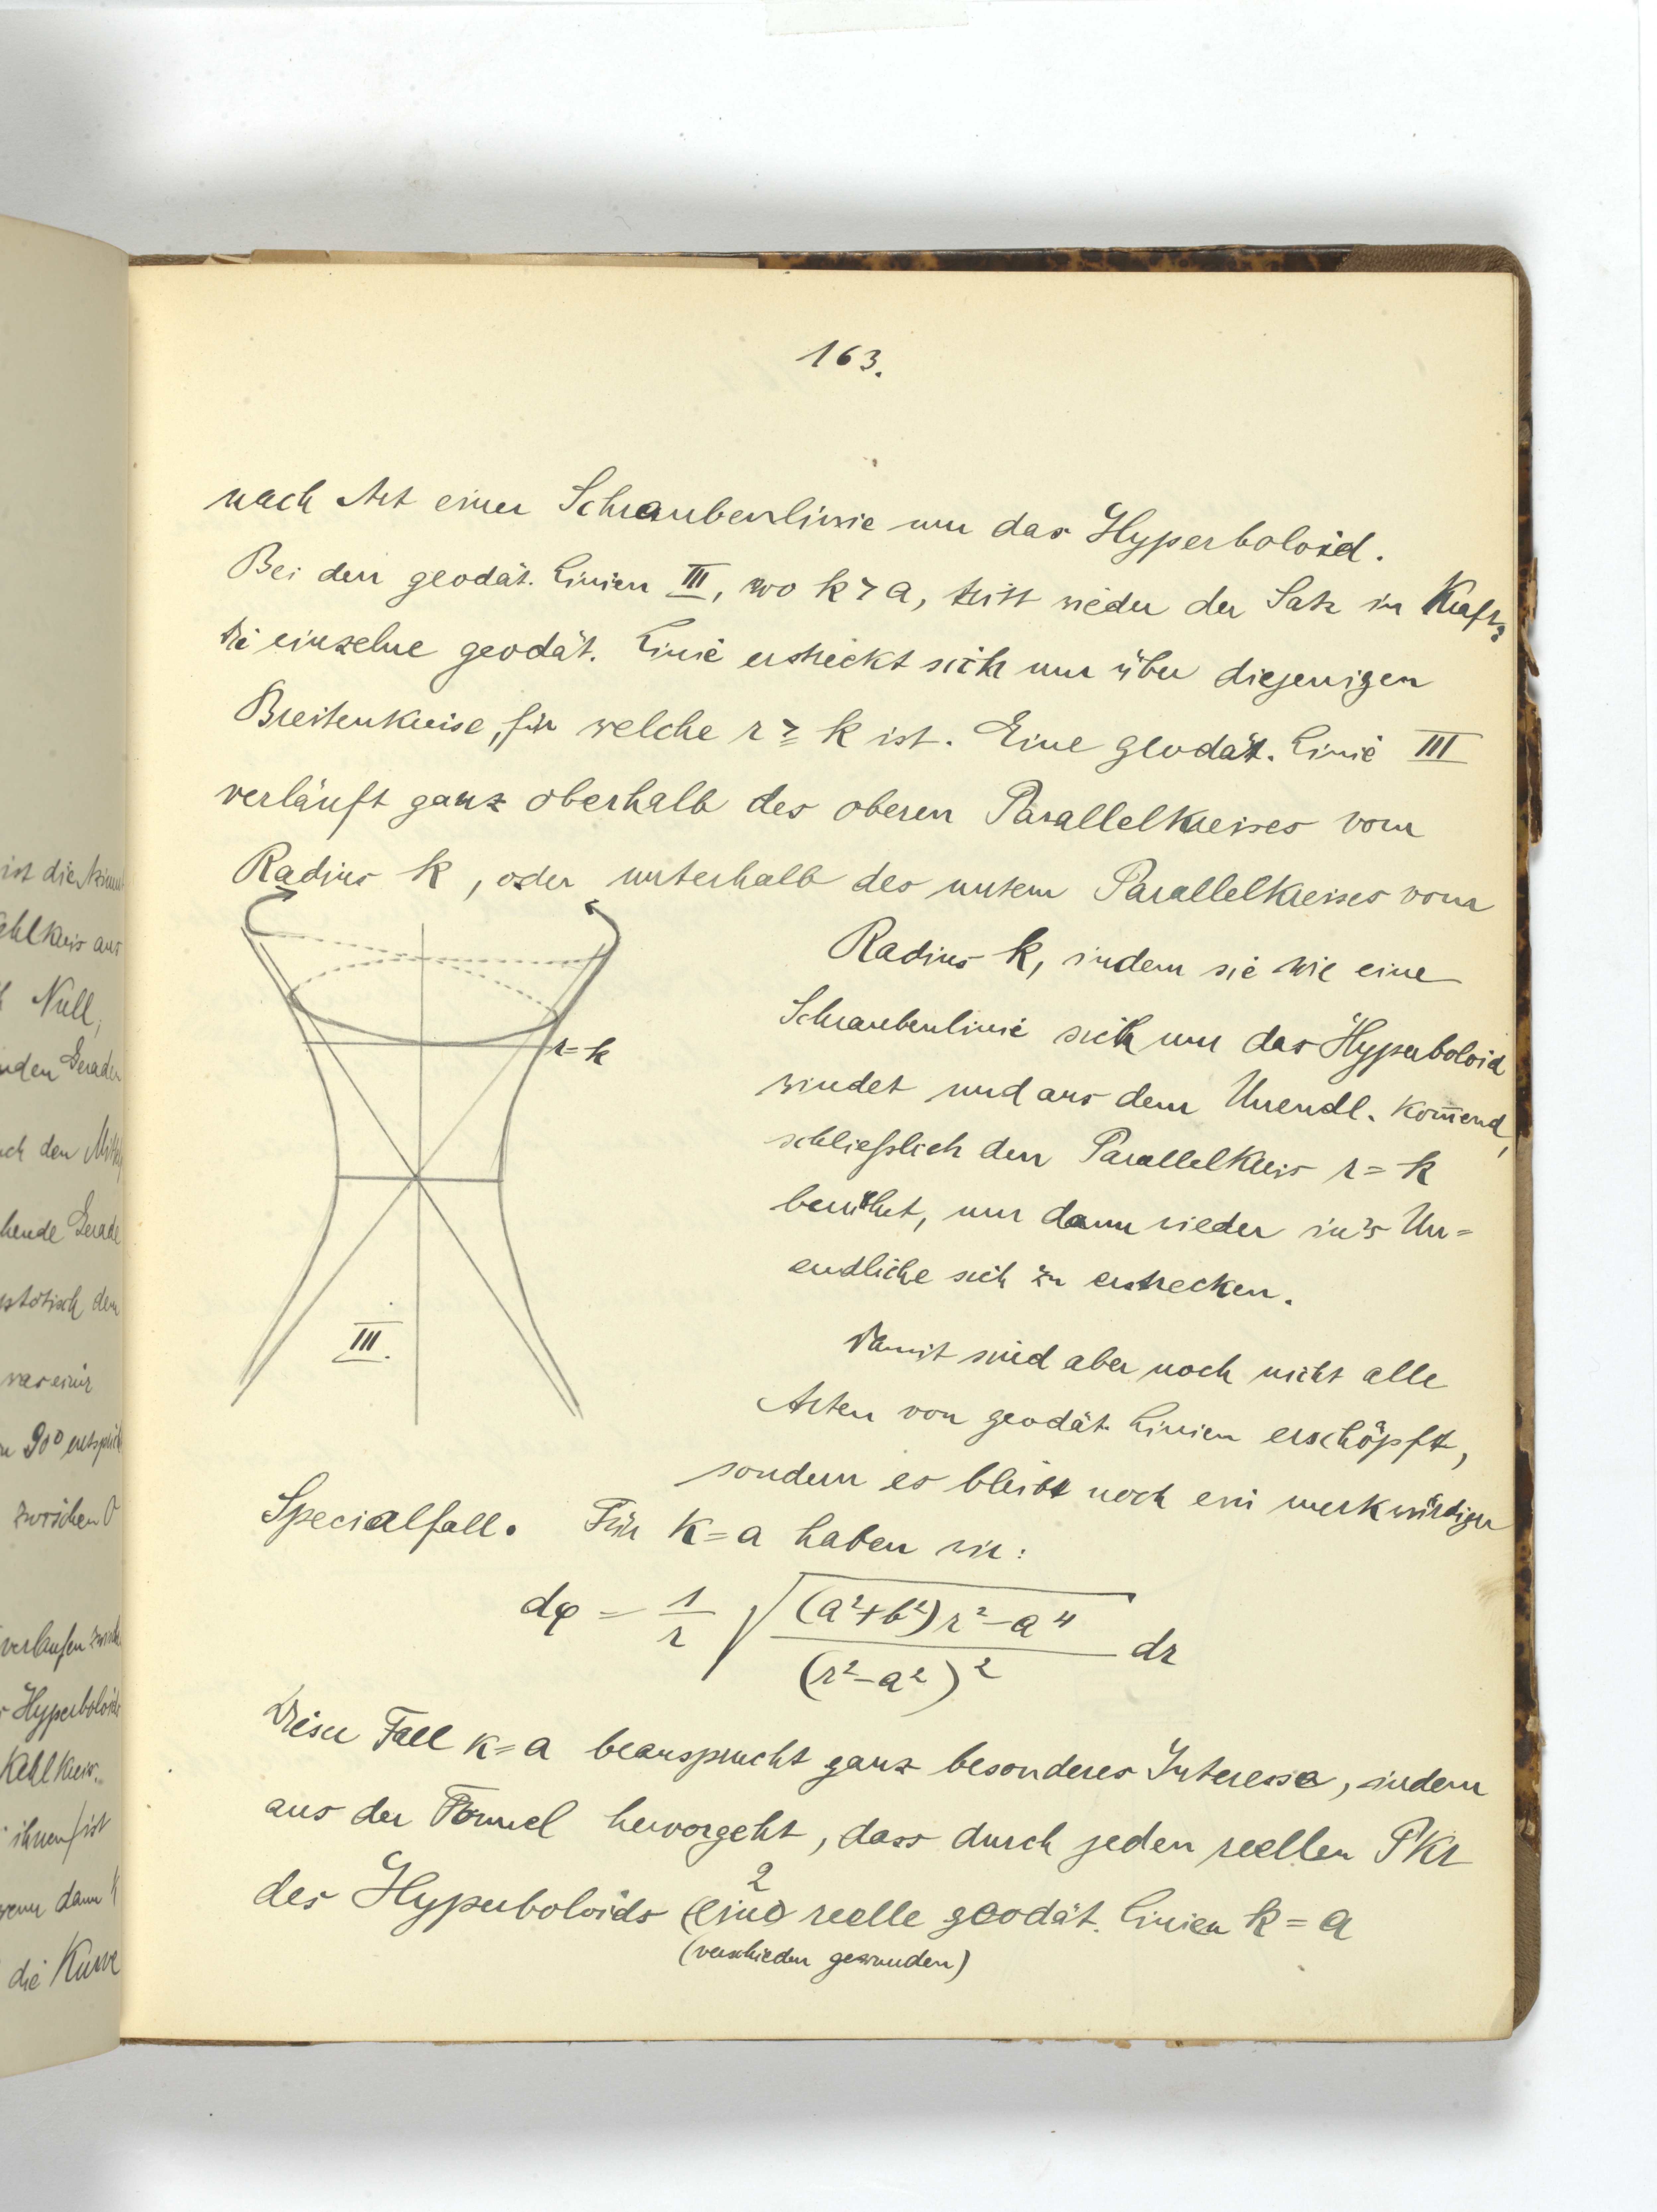 163.
nach Art einer Schraubenlinie um das Hyperboloid.
Bei den geodät. Linien III, wo k > a, tritt wieder der Satz in Kraft,
die einzelne geodät. Linie erstreckt sich nur über diejenigen
Breitenkreise, für welche r ≥ k ist. Eine geodät. Linie III
verläuft ganz oberhalb des oberen Parallelkreises vom
Radius k, oder unterhalb des untern Parallelkreises vom
Radius k, indem sie wie eine
Schraubenlinie sich um das Hyperboloid
windet und aus dem Unendl. kom̄end,
schließlich den Parallelkreis r = k
berührt, um dann wieder in's Un=
endliche sich zu erstrecken.
r = k
III.
Damit sind aber noch nicht alle
Arten von geodät. Linien erschöpft,
sondern es bleibt noch ein merkwürdiger
Specialfall. Für k = a haben wir:
dφ = 1/r √((a²+b²)r² − a⁴ / (r² − a²)²) dr
Dieser Fall k = a beansprucht ganz besonderes Interesse, indem
aus der Formel hervorgeht, dass durch jeden reellen PKr
2
des Hyperboloids (eine) reelle geodät. Linien k = a
(verschieden gewunden)
ist die
Kehlkreis aus
Null,
den Geraden
ch den
hende Gerade
dem
was einer
90°
zwischen 0
verlaufen
Hyperboloids
Kehlkreis.
ihnen ist
wenn dann k
die Kurve